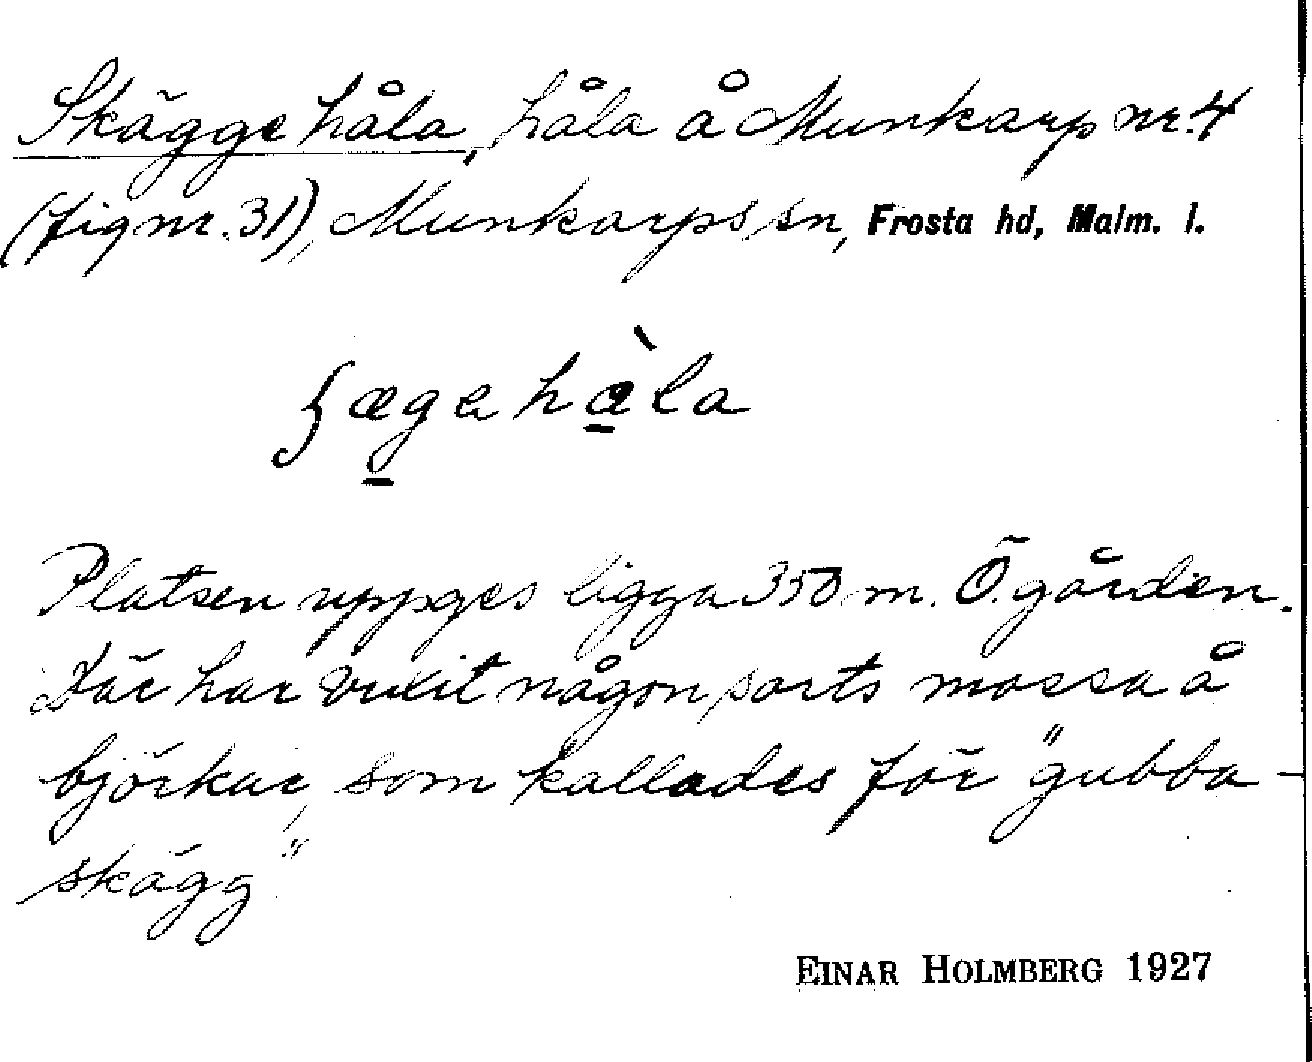 Skägge håla, håla å Munkarp nr. 4
(fig nr. 31), Munkarps sn, Frosta hd, Malm. l.
ʃægehàla
Platsen uppges ligga 350 m. Ö. gården.
Där har vuxit någon sorts mossa å
björkar, som kallades för "gubba-
skägg"
EINAR HOLMBERG 1927